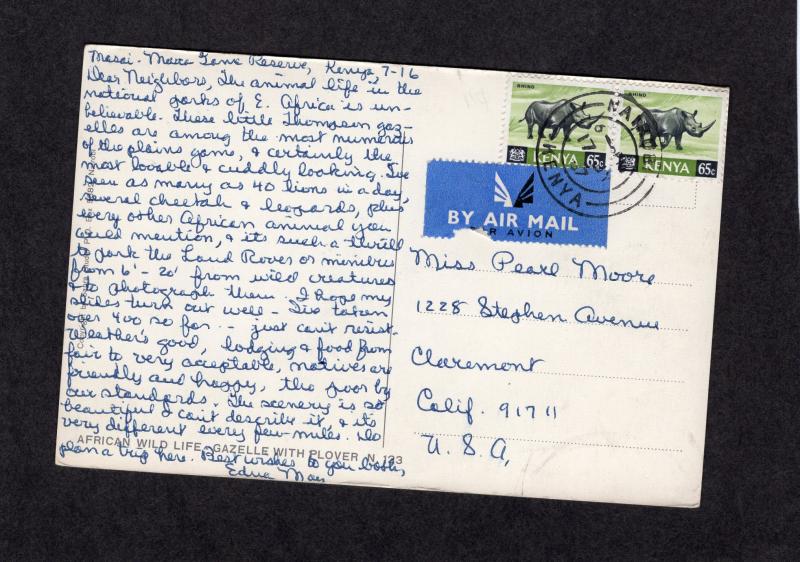 Masai-Mara Game Reserve, Kenya, 7-16
Dear Neighbors, The animal life in the
national parks of E. Africa is un-
believable. These little Thompson gaz-
elles are among the most numerous
of the plains game, & certainly the
most lovable & cuddly looking. I've
seen as many as 40 lions in a day,
several cheetah & leopards, plus
every other African animal you
could mention, & it's such a thrill
to park the Land Rover or minibus
from 6' - 20' from wild creatures
& to photograph them. I hope my
slides turn out well - I've taken
over 400 so far -- just can't resist.
Weather's good, lodging & food from
fair to very acceptable, natives are
friendly and happy, tho poor by
our standards. The scenery is so
beautiful I can't describe it, & it's
very different every few miles. Do
plan a trip here. Best wishes to you both,
Edna Mae
AFRICAN WILD LIFE. GAZELLE WITH PLOVER N. 123
RHINO
KENYA 65c
RHINO
KENYA 65c
NAIROBI
KENYA
BY AIR MAIL
PAR AVION
Miss Pearl Moore
1228 Stephen Avenue
Claremont
Calif. 91711
U.S.A,